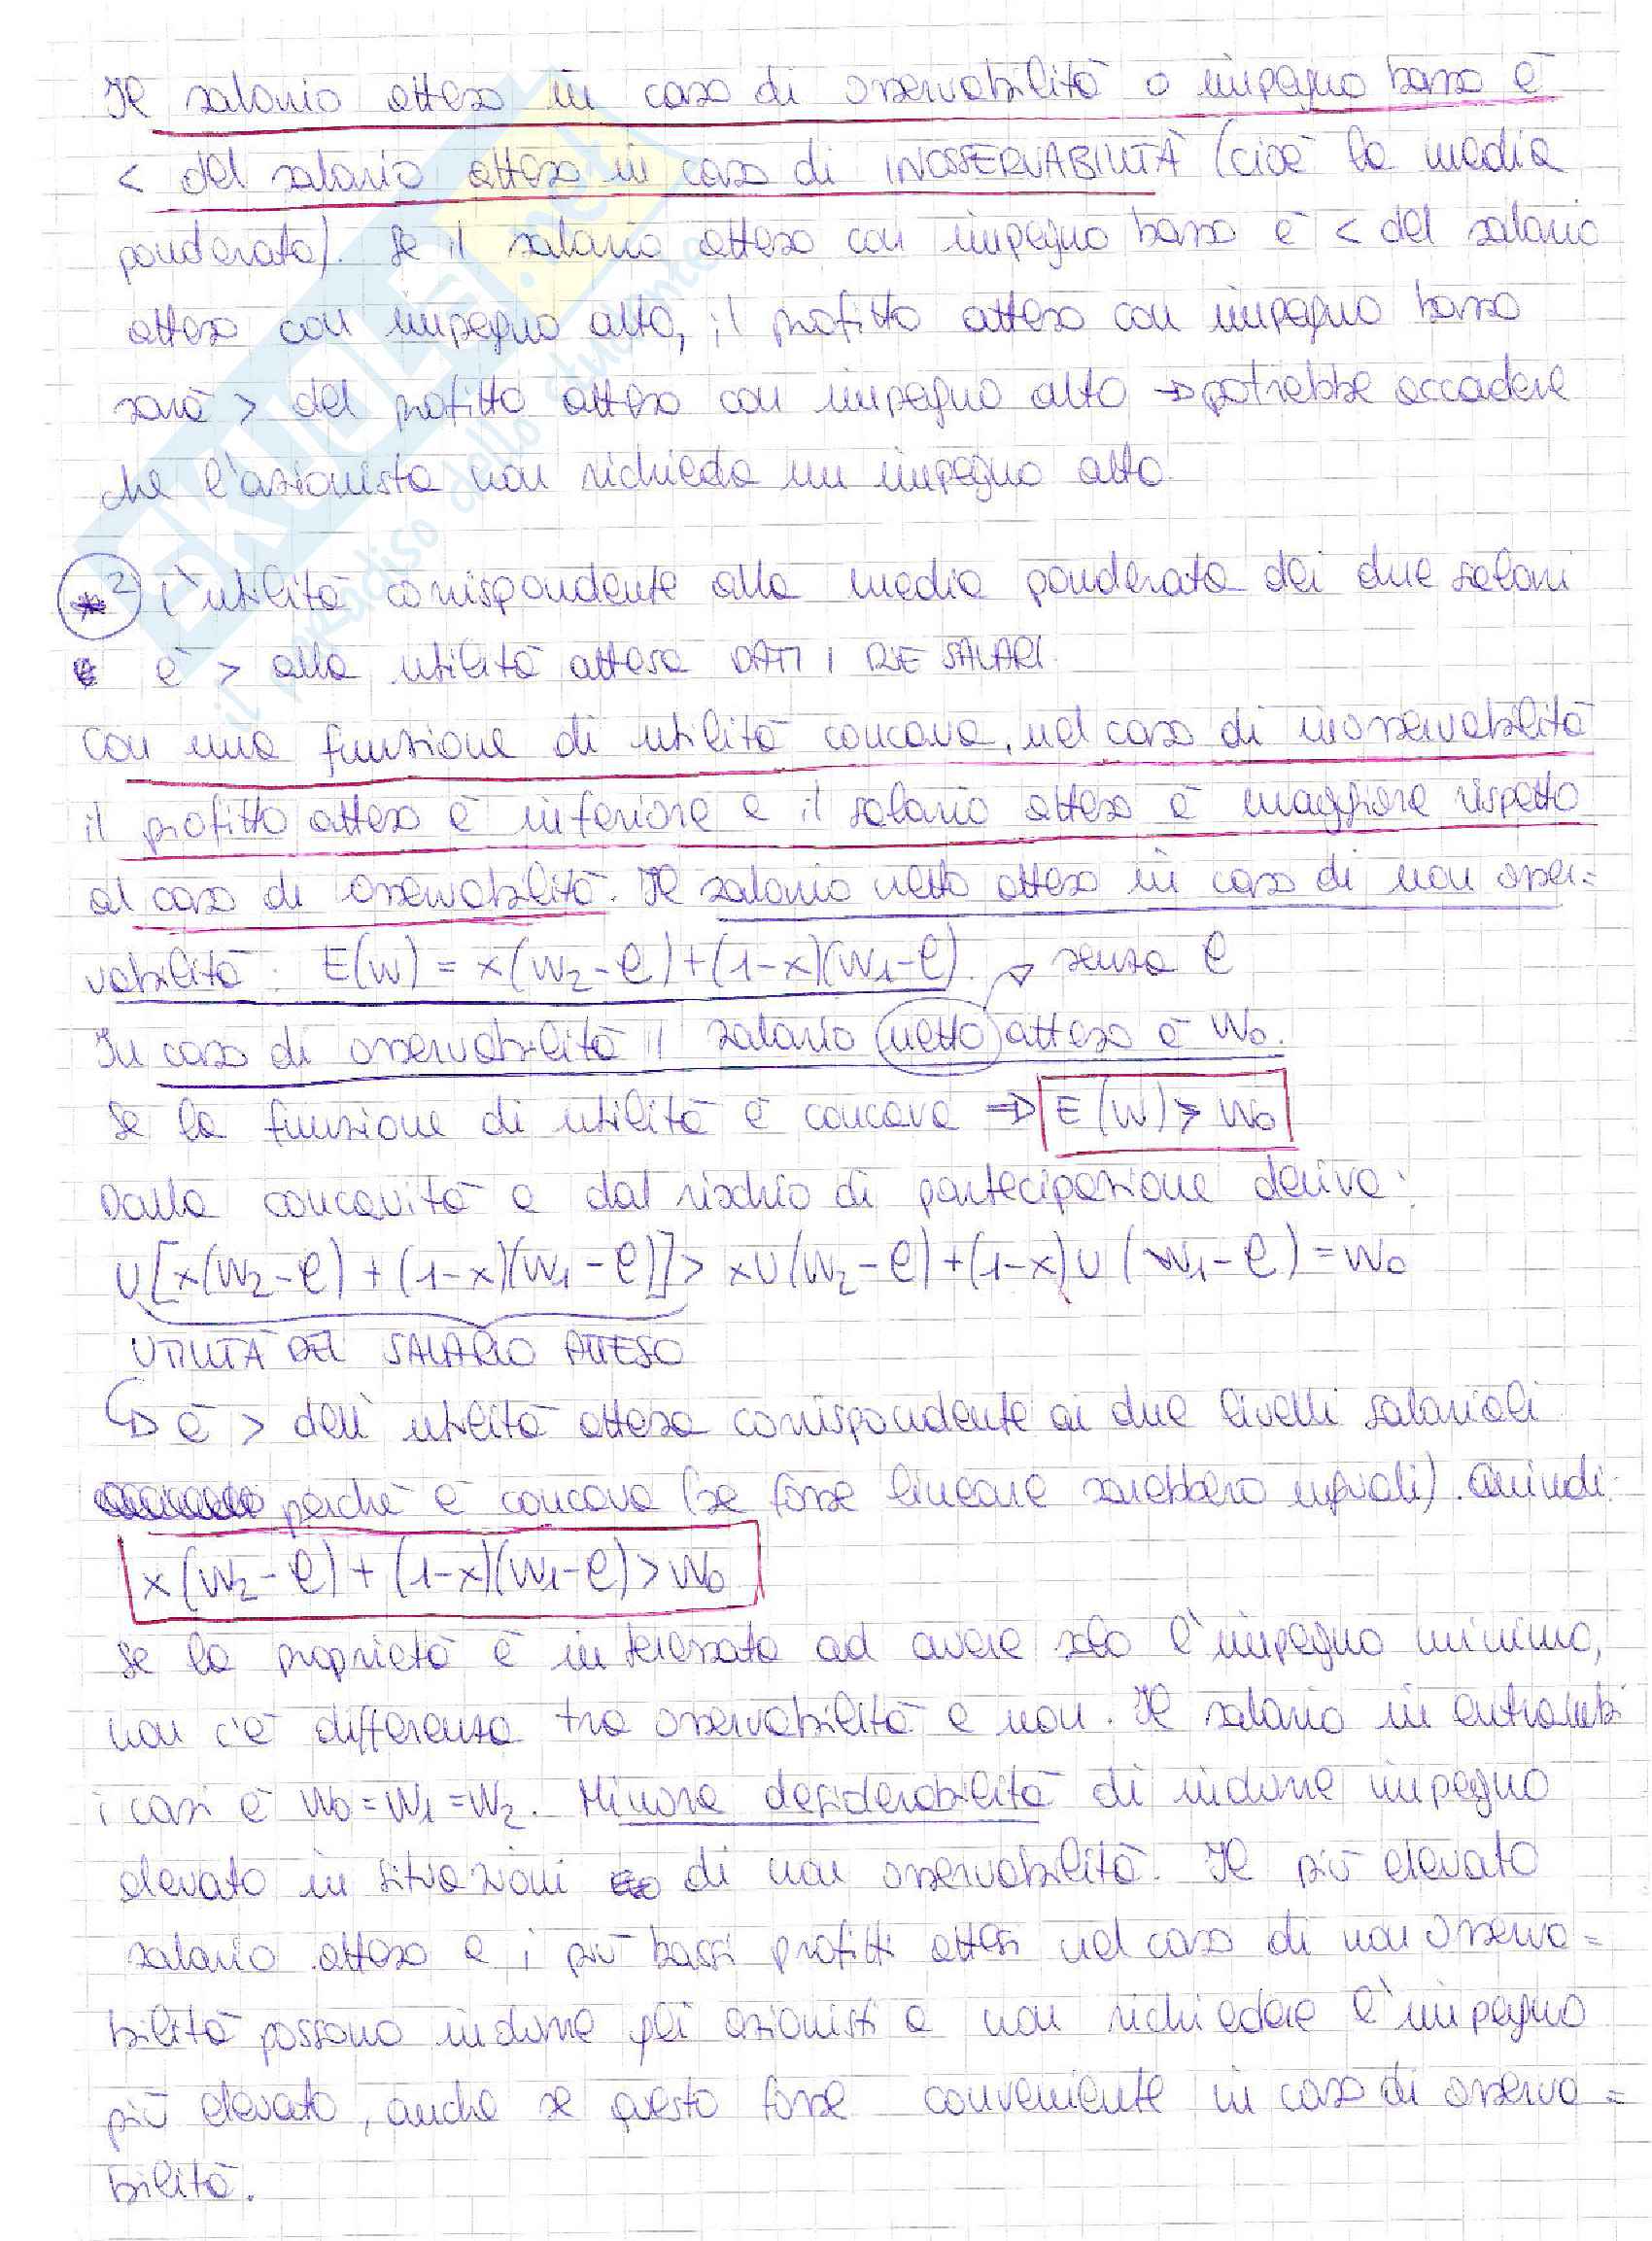 Il salario atteso in caso di osservabilità o impegno basso è
< del salario atteso in caso di INOSSERVABILITÀ (cioè la media
ponderata). Se il salario atteso con impegno basso è < del salario
atteso con impegno alto, il profitto atteso con impegno basso
sarà > del profitto atteso con impegno alto → potrebbe accadere
che l'azionista non richieda un impegno alto.
*² L'utilità corrispondente alla media ponderata dei due salari
è > alla utilità attesa DATI I DUE SALARI.
Con una funzione di utilità concava, nel caso di inosservabilità
il profitto atteso è inferiore e il salario atteso è maggiore rispetto
al caso di osservabilità. Il salario netto atteso in caso di non osser=
vabilità: E(W) = x(W₂-e)+(1-x)(W₁-e). → senza e
In caso di osservabilità il salario netto atteso è W₀.
Se la funzione di utilità è concava ⇒ E(W) > W₀
Dalla concavità e dal rischio di partecipazione deriva:
U[x(W₂-e)+(1-x)(W₁-e)] > xU(W₂-e)+(1-x)U(W₁-e)=W₀
UTILITÀ DEL SALARIO ATTESO
↳ è > dell'utilità attesa corrispondente ai due livelli salariali
perchè è concava (se fosse lineare sarebbero uguali). Quindi:
x(W₂-e)+(1-x)(W₁-e)>W₀
Se la proprietà è interessata ad avere solo l'impegno minimo,
non c'è differenza tra osservabilità e non. Il salario in entrambi
i casi è W₀=W₁=W₂. Minore desiderabilità di indurre impegno
elevato in situazioni di non osservabilità. Il più elevato
salario atteso e i più bassi profitti attesi nel caso di non osserva=
bilità possono indurre gli azionisti a non richiedere l'impegno
più elevato, anche se questo fosse conveniente in caso di osserva=
bilità.
SKUOLA.net
il paradiso dello studente